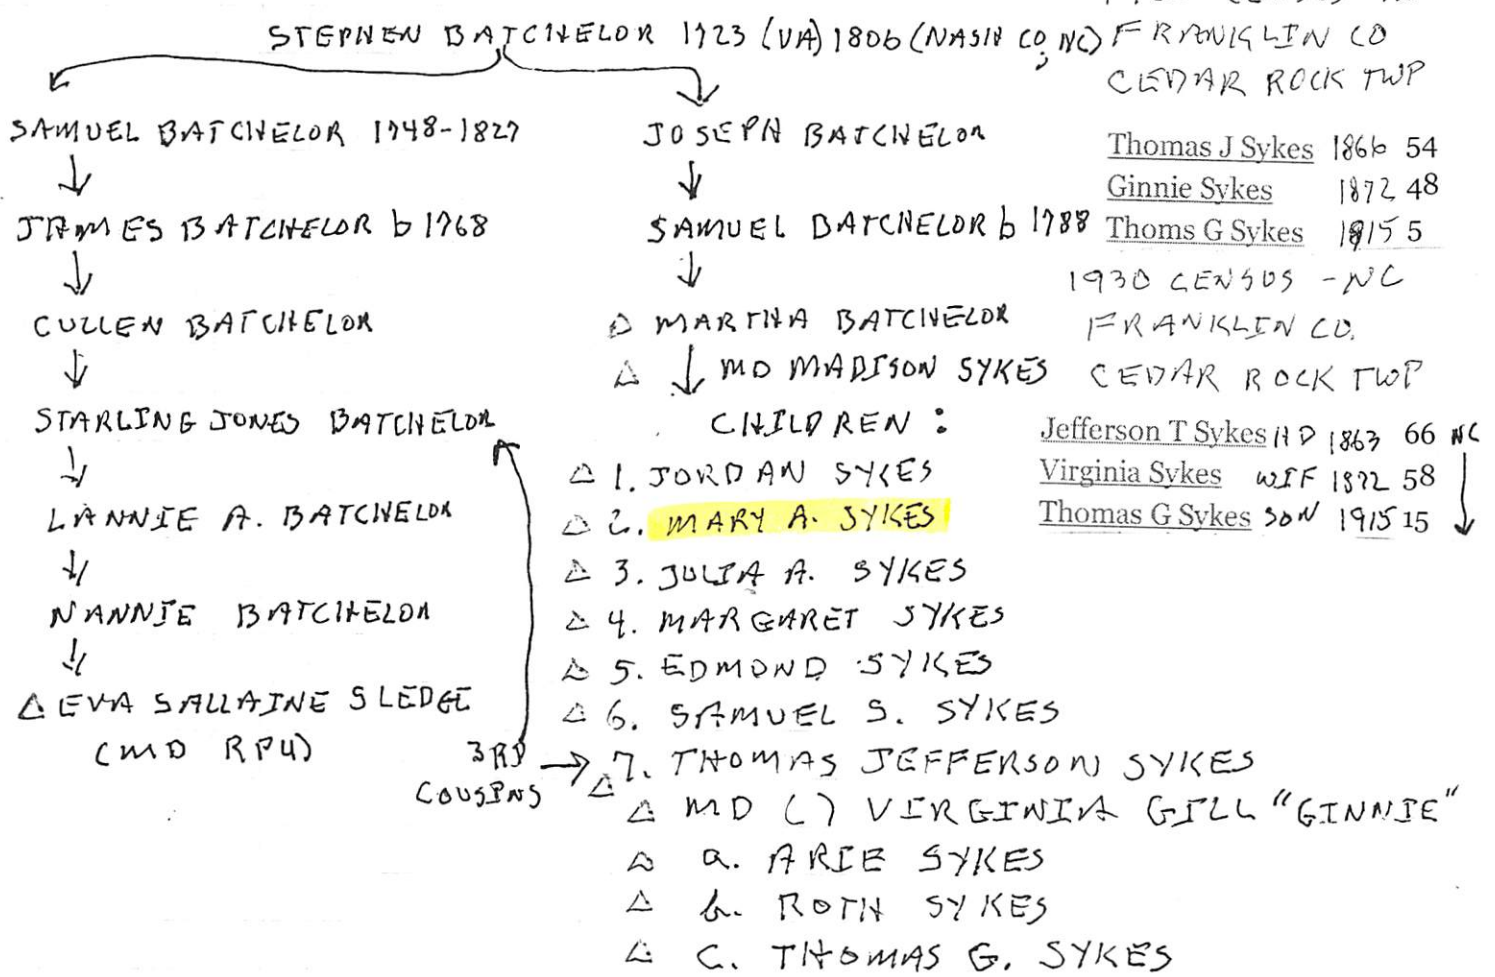 STEPHEN BATCHELOR 1723 (VA) 1806 (NASH CO, NC)
SAMUEL BATCHELOR 1748-1827
JAMES BATCHELOR b 1768
CULLEN BATCHELOR
STARLING JONES BATCHELOR
LANNIE A. BATCHELOR
NANNIE BATCHELOR
△ EVA SALLAINE SLEDGE
(MD RPU)
3RD
COUSINS
JOSEPH BATCHELOR
SAMUEL BATCHELOR b 1788
△ MARTHA BATCHELOR
△ MD MADISON SYKES
CHILDREN :
△ 1. JORDAN SYKES
△ 2. MARY A. SYKES
△ 3. JULIA A. SYKES
△ 4. MARGARET SYKES
△ 5. EDMOND SYKES
△ 6. SAMUEL S. SYKES
△ 7. THOMAS JEFFERSON SYKES
△ MD ( ) VIRGINIA GILL "GINNIE"
△ a. ARIE SYKES
△ b. ROTH SYKES
△ C. THOMAS G. SYKES
FRANKLIN CO
CEDAR ROCK TWP
Thomas J Sykes 1866 54
Ginnie Sykes 1872 48
Thoms G Sykes 1915 5
1930 CENSUS - NC
FRANKLIN CO.
CEDAR ROCK TWP
Jefferson T Sykes HD 1863 66 NC
Virginia Sykes WIF 1872 58
Thomas G Sykes SON 1915 15